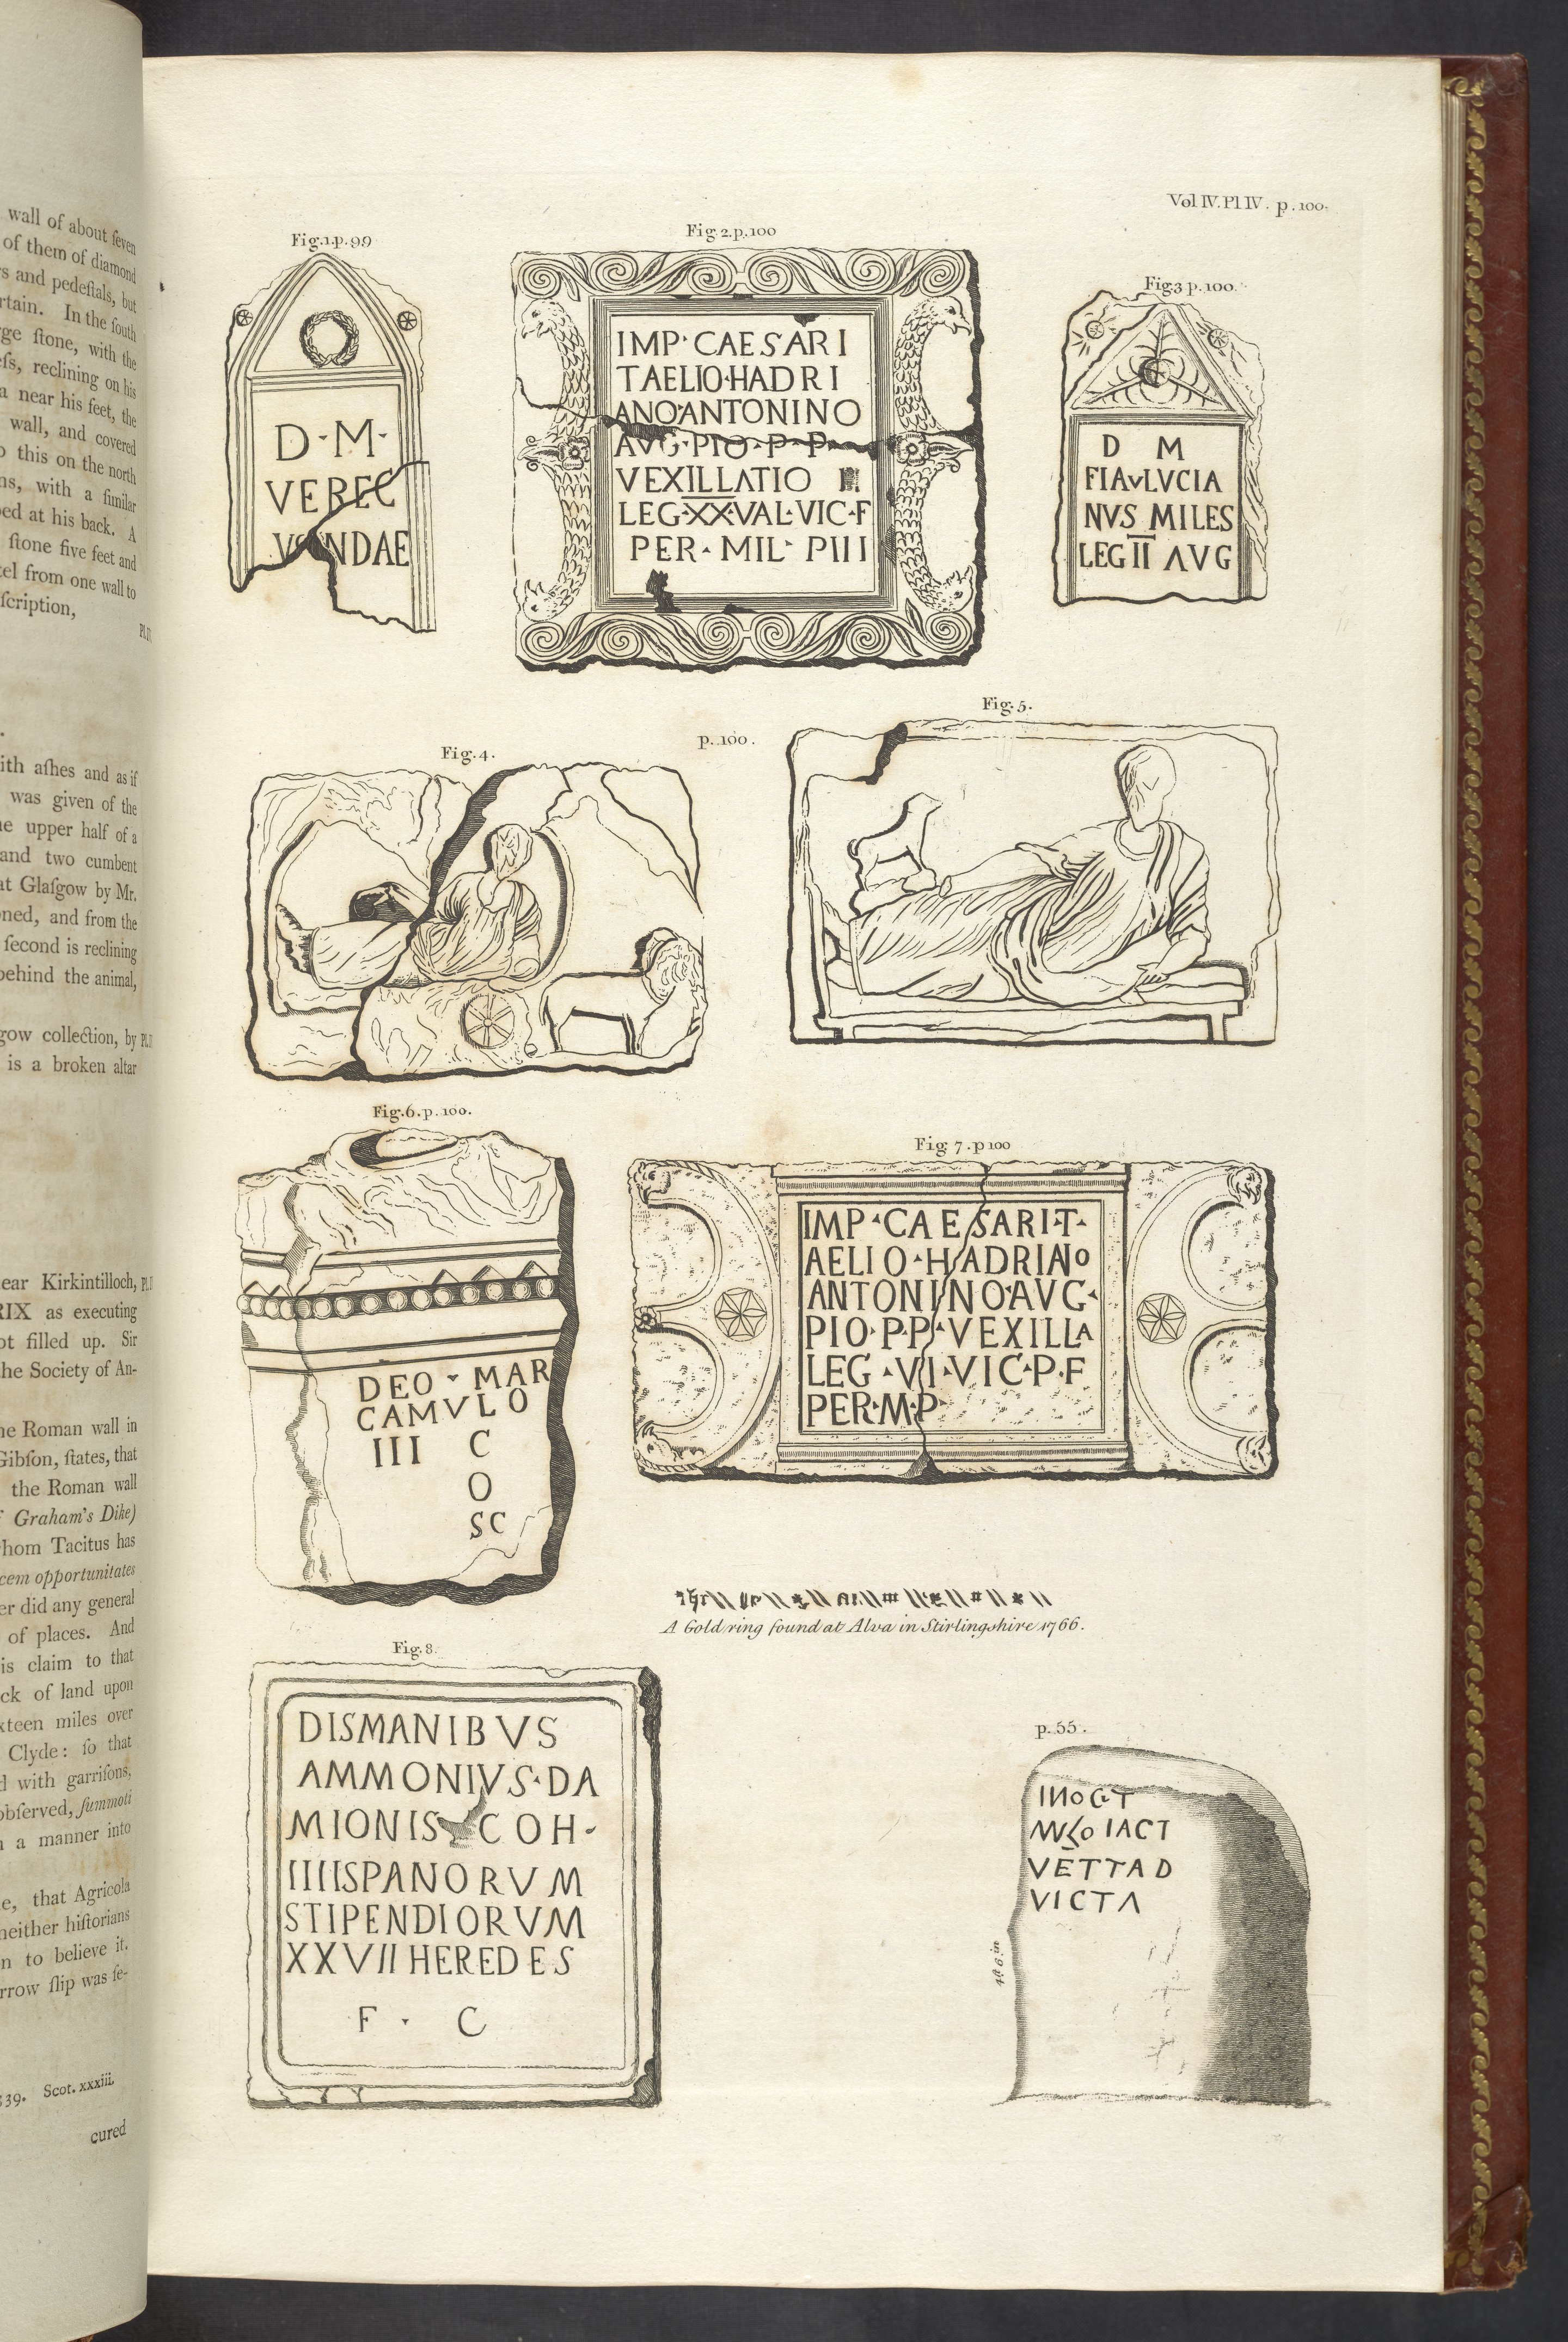 wall of about ſeven
of them of diamond
and pedeſtals, but
In the ſouth
ſtone, with the
reclining on his
near his feet, the
wall, and covered
this on the north
with a ſimilar
at his back. A
ſtone five feet and
from one wall to
ith aſhes and as if
was given of the
upper half of a
and two cumbent
at Glaſgow by Mr.
and from the
ſecond is reclining
behind the animal,
collection, by
is a broken altar
Kirkintilloch,
RIX as executing
filled up. Sir
the Society of An-
Roman wall in
Gibſon, ſtates, that
the Roman wall
Graham's Dike)
Tacitus has
opportunitates
did any general
of places. And
is claim to that
of land upon
miles over
Clyde: ſo that
with garriſons,
obſerved, ſummoti
a manner into
that Agricola
neither hiſtorians
to believe it.
ſlip was ſe-
39. Scot. xxxiii.
cured
Vol IV. Pl IV. p. 100.
Fig. 1. p. 99
D · M ·
VEREC
VNDAE
Fig. 2. p. 100
IMP · CAESARI
TAELIO · HADRI
ANO · ANTONINO
AVG · PIO · P · P
VEXILLATIO
LEG · XX · VAL · VIC · F
PER · MIL · PIII
Fig 3 p. 100.
D M
FIAVLVCIA
NVS MILES
LEG II AVG
Fig. 4.
p. 100.
Fig. 5.
Fig. 6. p. 100.
DEO · MAR
CAMVLO
III C
O
SC
Fig. 7. p 100
IMP · CAESARI · T ·
AELIO · HADRIANO
ANTONINO · AVG ·
PIO · P · P · VEXILLA
LEG · VI · VIC · P · F
PER · M · P
A Gold ring found at Alva in Stirlingshire 1766.
Fig. 8.
DISMANIBVS
AMMONIVS · DA
MIONIS COH ·
IIIISPANORVM
STIPENDIORVM
XXVII HEREDES
F · C
p. 55.
VETTA D
VICTA